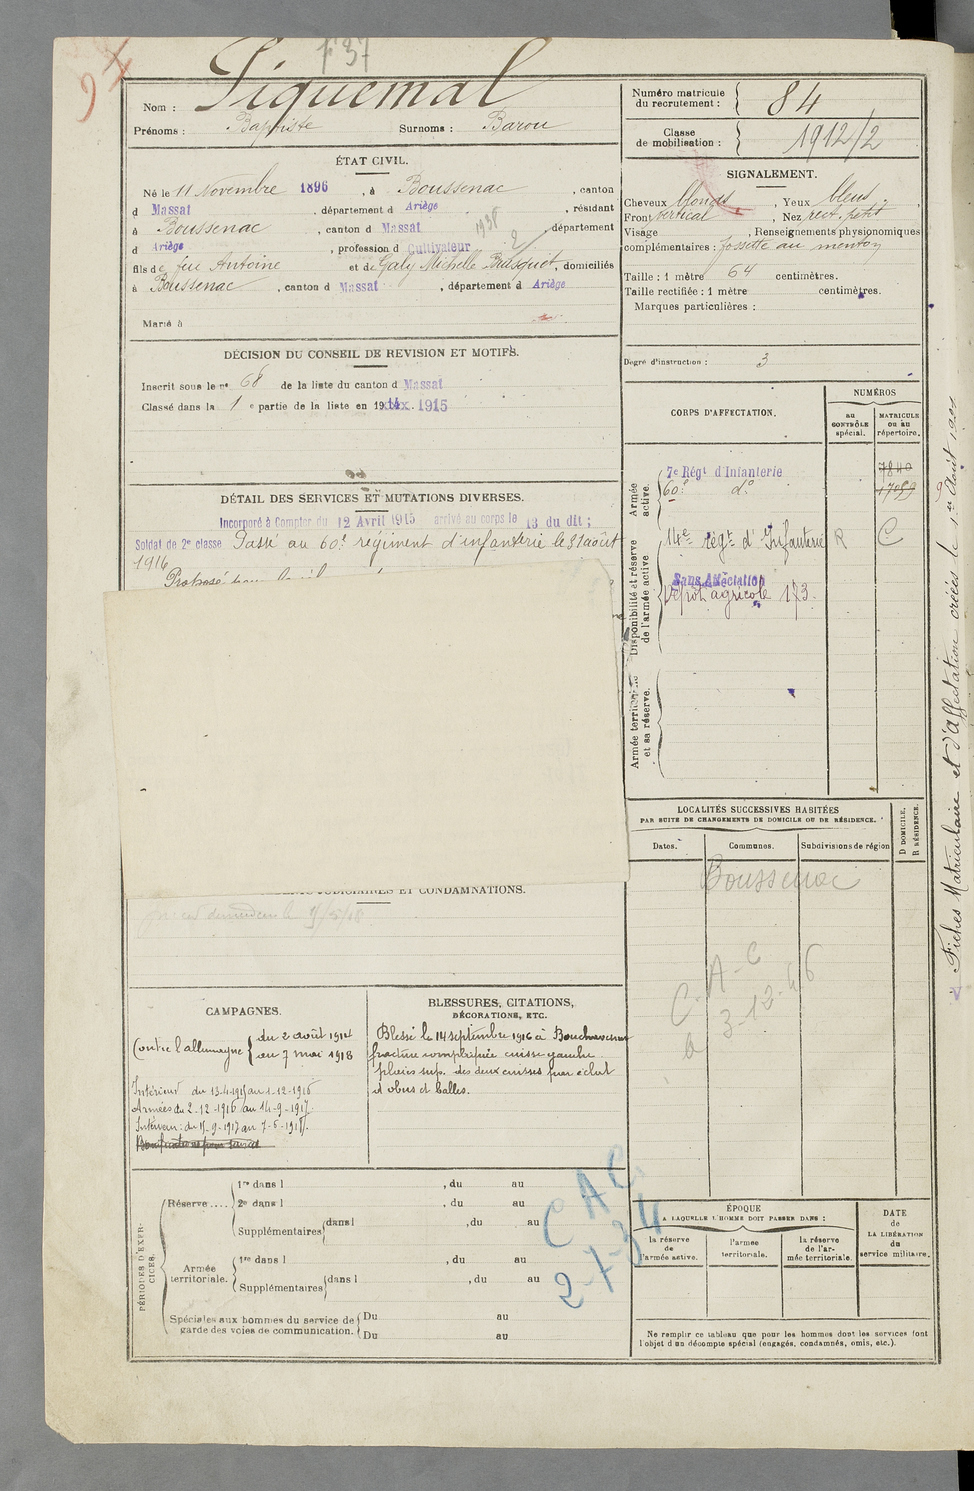 F37
94
Nom : Piquemal
Prénoms : Baptiste Surnoms : Barou
Numéro matricule du recrutement : 84
Classe de mobilisation : 1912/2
ÉTAT CIVIL.
Né le 11 Novembre 1896, à Boussenac, canton
d Massat, département d Ariège, résidant
à Boussenac, canton d Massat, département
d Ariège, profession d Cultivateur
1936 2
fils de feu Antoine et de Galy Michelle Brasquet, domiciliés
à Boussenac, canton d Massat, département d Ariège
Marié à
SIGNALEMENT.
Cheveux blonds, Yeux bleus,
Front vertical, Nez rect. petit
Visage , Renseignements physionomiques
complémentaires : fossette au menton
Taille : 1 mètre 64 centimètres.
Taille rectifiée : 1 mètre centimètres.
Marques particulières :
Degré d'instruction : 3
DÉCISION DU CONSEIL DE REVISION ET MOTIFS.
Inscrit sous le nº 68 de la liste du canton d Massat
Classé dans la 1 e partie de la liste en 1915
DÉTAIL DES SERVICES ET MUTATIONS DIVERSES.
Incorporé à Compter du 12 Avril 1915 arrivé au corps le 13 du dit ;
Soldat de 2e classe Passé au 60e régiment d'infanterie le 31 août
1916
Proposé pour
CORPS D'AFFECTATION.
NUMÉROS
au CONTRÔLE spécial.
MATRICULE ou au répertoire.
Armée active.
7e Régt d'Infanterie 7840
60e do
Disponibilité et réserve de l'armée active.
14e régt d'Infanterie R C
Sans Affectation
Dépôt agricole 173.
Armée territoriale et sa réserve.
LOCALITÉS SUCCESSIVES HABITÉES
PAR SUITE DE CHANGEMENTS DE DOMICILE OU DE RÉSIDENCE.
Dates. Communes. Subdivisions de région
D DOMICILE. R RÉSIDENCE.
Boussenac
C-A-C
a 3-12-46
ET CONDAMNATIONS.
CAMPAGNES.
Contre l'allemagne { du 2 août 1914
au 7 mai 1918
Intérieur du 13-4-1915 au 1-12-1916
Armées du 2-12-1916 au 14-9-1917.
Intérieur : du 15-9-1917 au 7-5-1918.
BLESSURES, CITATIONS,
DÉCORATIONS, ETC.
Blessé le 14 septembre 1916 à Bouchavesnes
fracture compliquée cuisse gauche
plaies sup. des deux cuisses par éclat
d'obus et balles.
PÉRIODES D'EXERCICES.
Réserve .... 1re dans l , du au
2e dans l , du au
Supplémentaires dans l , du au
Armée territoriale. 1re dans l , du au
Supplémentaires dans l , du au
Spéciales aux hommes du service de garde des voies de communication. Du au
Du au
C A C
2-7-34
ÉPOQUE
A LAQUELLE L'HOMME DOIT PASSER DANS :
la réserve de l'armée active.
l'armée territoriale.
la réserve de l'armée territoriale.
DATE de LA LIBÉRATION du service militaire.
Ne remplir ce tableau que pour les hommes dont les services font
l'objet d'un décompte spécial (engagés, condamnés, omis, etc.).
2 Fiches Matriculaire et d'Affectation créées le 1er Août